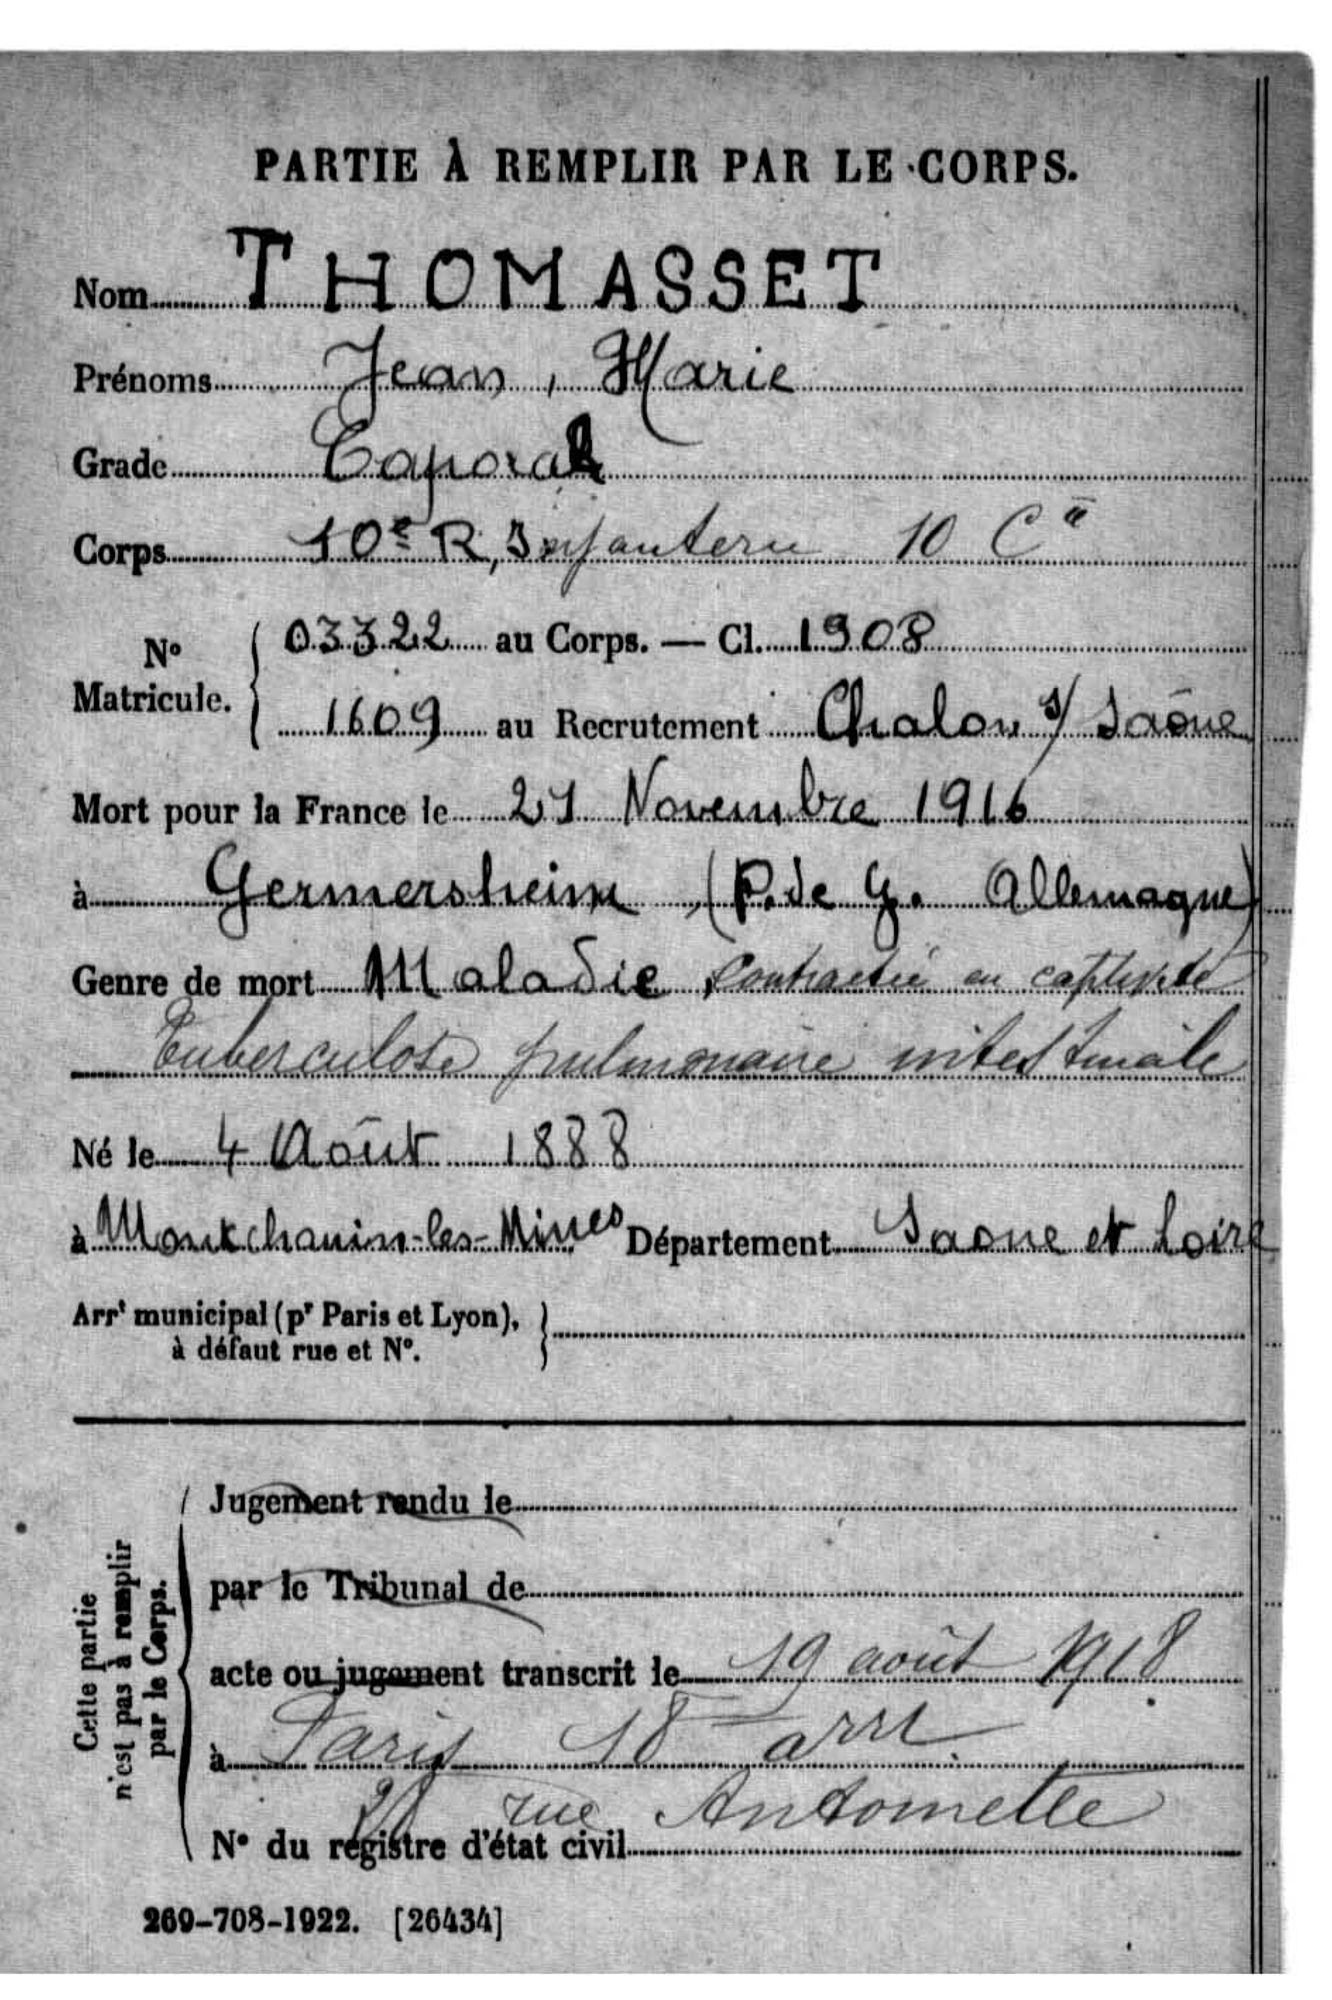 PARTIE À REMPLIR PAR LE CORPS.
Nom THOMASSET
Prénoms Jean, Marie
Grade Caporal
Corps 10e R, Infanterie 10 Cie
N° Matricule. 03322 au Corps. — Cl. 1908
1609 au Recrutement Chalon s/ Saône
Mort pour la France le 21 Novembre 1916
à Germersheim (P. de G. Allemagne)
Genre de mort Maladie, contractée en captivité
Tuberculose pulmonaire intestinale
Né le 4 Août 1888
à Montchanin-les-Mines Département Saone et Loire
Arrt municipal (pr Paris et Lyon),
à défaut rue et N°.
Cette partie
n'est pas à remplir
par le Corps.
Jugement rendu le
par le Tribunal de
acte ou jugement transcrit le 19 août 1918
à Paris 18e arrt
rue Antoinette
N° du registre d'état civil
269-708-1922. [26434]